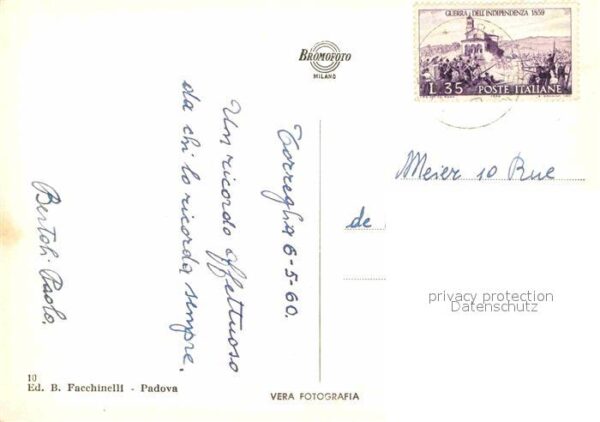 GUERRA DELL'INDIPENDENZA 1859
L. 35 POSTE ITALIANE
BROMOFOTO
MILANO
Torreglia 6-5-60.
Un ricordo affettuoso
da chi lo ricorda sempre.
Bertoli Paolo.
Meier 10 Rue
de
privacy protection
Datenschutz
10
Ed. B. Facchinelli - Padova
VERA FOTOGRAFIA